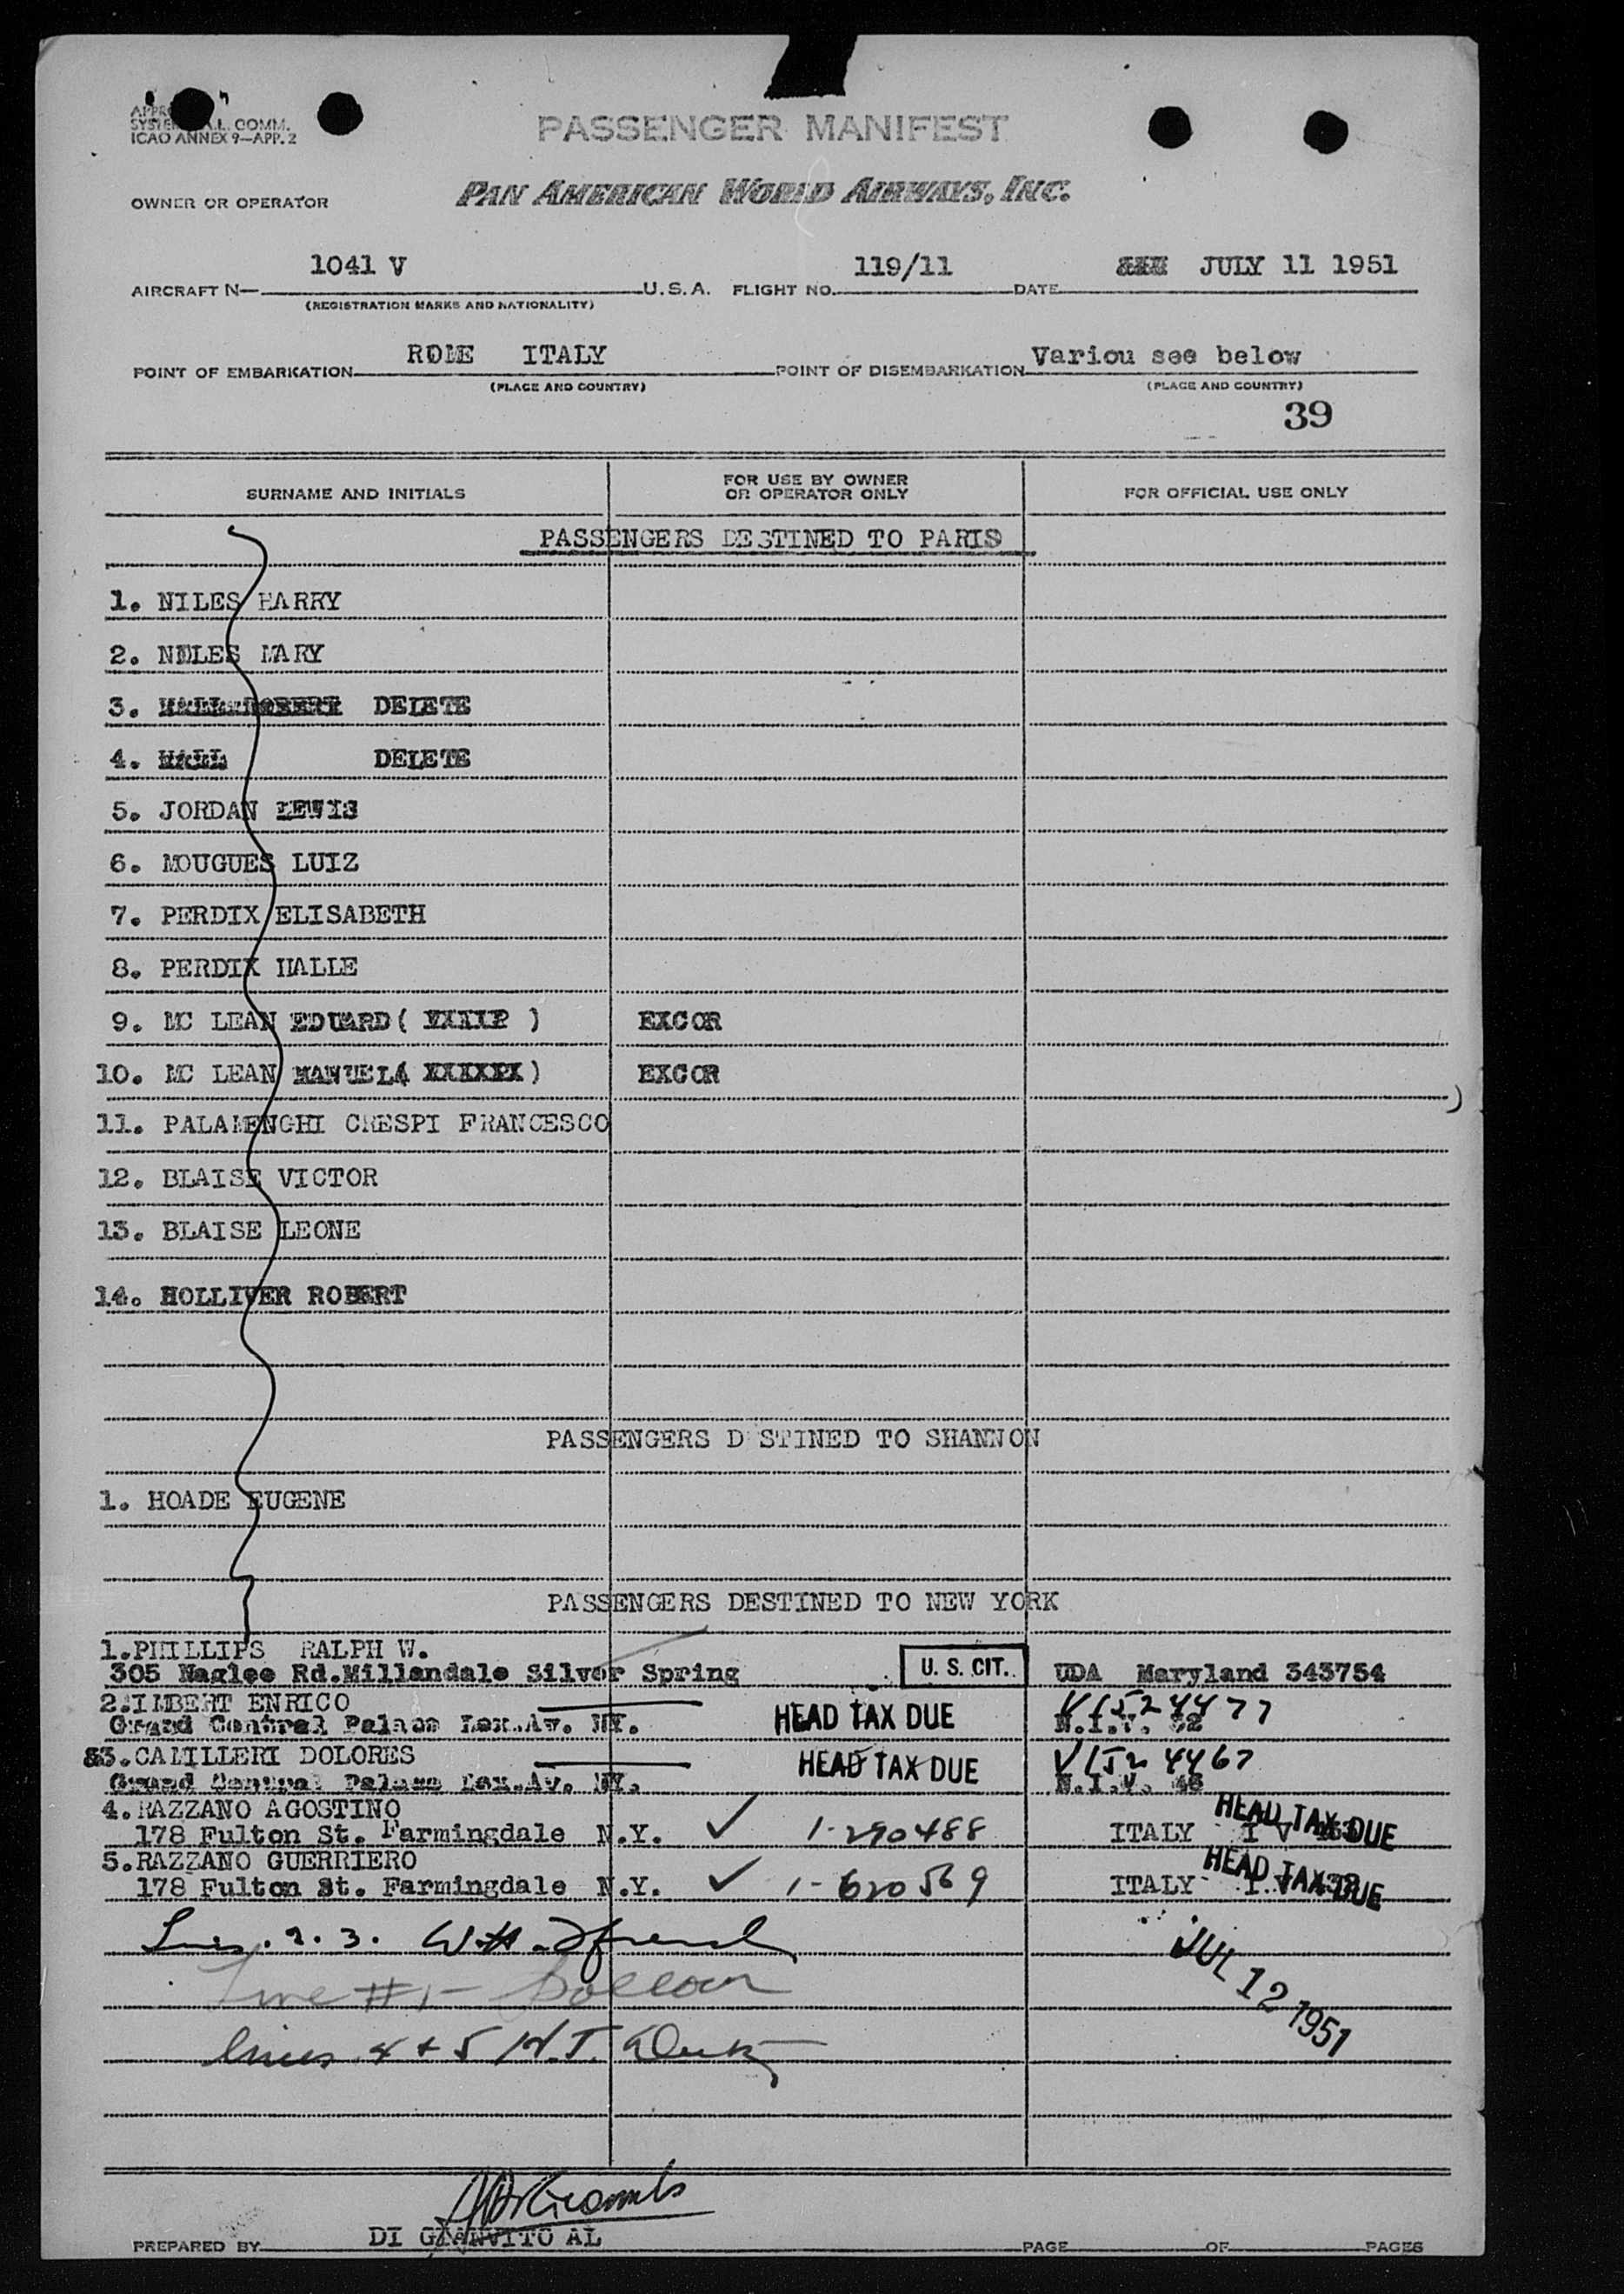 SYSTEM A.L. COMM.
ICAO ANNEX 9—APP. 2
PASSENGER MANIFEST
OWNER OR OPERATOR
PAN AMERICAN WORLD AIRWAYS, INC.
1041 V 119/11 JULY 11 1951
AIRCRAFT N— U.S.A. FLIGHT NO. DATE
(REGISTRATION MARKS AND NATIONALITY)
ROME ITALY Variou see below
POINT OF EMBARKATION POINT OF DISEMBARKATION
(PLACE AND COUNTRY) (PLACE AND COUNTRY)
39
SURNAME AND INITIALS FOR USE BY OWNER OR OPERATOR ONLY FOR OFFICIAL USE ONLY
PASSENGERS DESTINED TO PARIS
1. NILES HARRY
2. NILES MARY
3. DELETE
4. DELETE
5. JORDAN LEWIS
6. MOUGUES LUIZ
7. PERDIX ELISABETH
8. PERDIX HALLE
9. MC LEAN EDUARD ( ) EXCOR
10. MC LEAN MANUELA ( ) EXCOR
11. PALAMENGHI CRESPI FRANCESCO
12. BLAISE VICTOR
13. BLAISE LEONE
14. HOLLIVER ROBERT
PASSENGERS D STINED TO SHANNON
1. HOADE EUGENE
PASSENGERS DESTINED TO NEW YORK
1.PHILLIPS RALPH W.
305 Naglee Rd.Millandale Silver Spring U. S. CIT. UDA Maryland 343754
2.IMBERT ENRICO V1524477
Grand Central Palace Lex.Av. NY. HEAD TAX DUE N.I.V. 52
3.CAMILLERI DOLORES V1524467
Grand Central Palace Lex.Av. NY. HEAD TAX DUE N.I.V. 46
4.RAZZANO AGOSTINO HEAD TAX DUE
178 Fulton St. Farmingdale N.Y. ✓ 1-290488 ITALY I V
5.RAZZANO GUERRIERO HEAD TAX DUE
178 Fulton St. Farmingdale N.Y. ✓ 1-620569 ITALY I V
Lines. 2. 3. W.H.
JUL 12 1951
Line #1-
lines 4 + 5 H.T.
DI GIANVITO AL
PREPARED BY PAGE OF PAGES